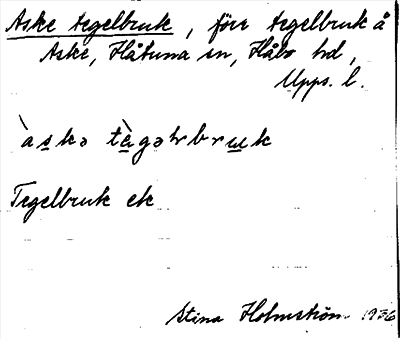 Aske tegelbruk, förr tegelbruk å
Aske, Håtuna sn, Håbo hd,
Upps. l.
`askə tègəlrbruk
Tegelbruk etc
Stina Holmström 1936